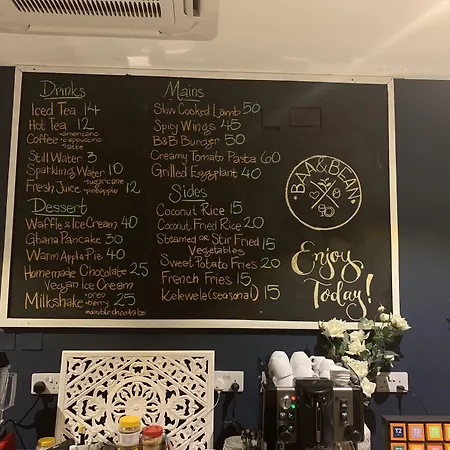 Drinks
Iced Tea 14
Hot Tea 12
Coffee •americano
•cappuccino
•latte
Still Water 3
Sparkling Water 10
Fresh Juice •sugarcane
•pineapple 12
Dessert
Waffle & Ice Cream 40
Ghana Pancake 30
Warm Apple Pie 40
Homemade Chocolate 25
Vegan Ice Cream
Milkshake •oreo
•berry 25
•double chocolate
Mains
Slow Cooked Lamb 50
Spicy Wings 45
B&B Burger 50
Creamy Tomato Pasta 60
Grilled Eggplant 40
Sides
Coconut Rice 15
Coconut Fried Rice 20
Steamed or Stir Fried 15
Vegetables
Sweet Potato Fries 20
French Fries 15
Kelewele (seasonal) 15
BAA & BEAN
Enjoy
Today!
T2
T2
T2